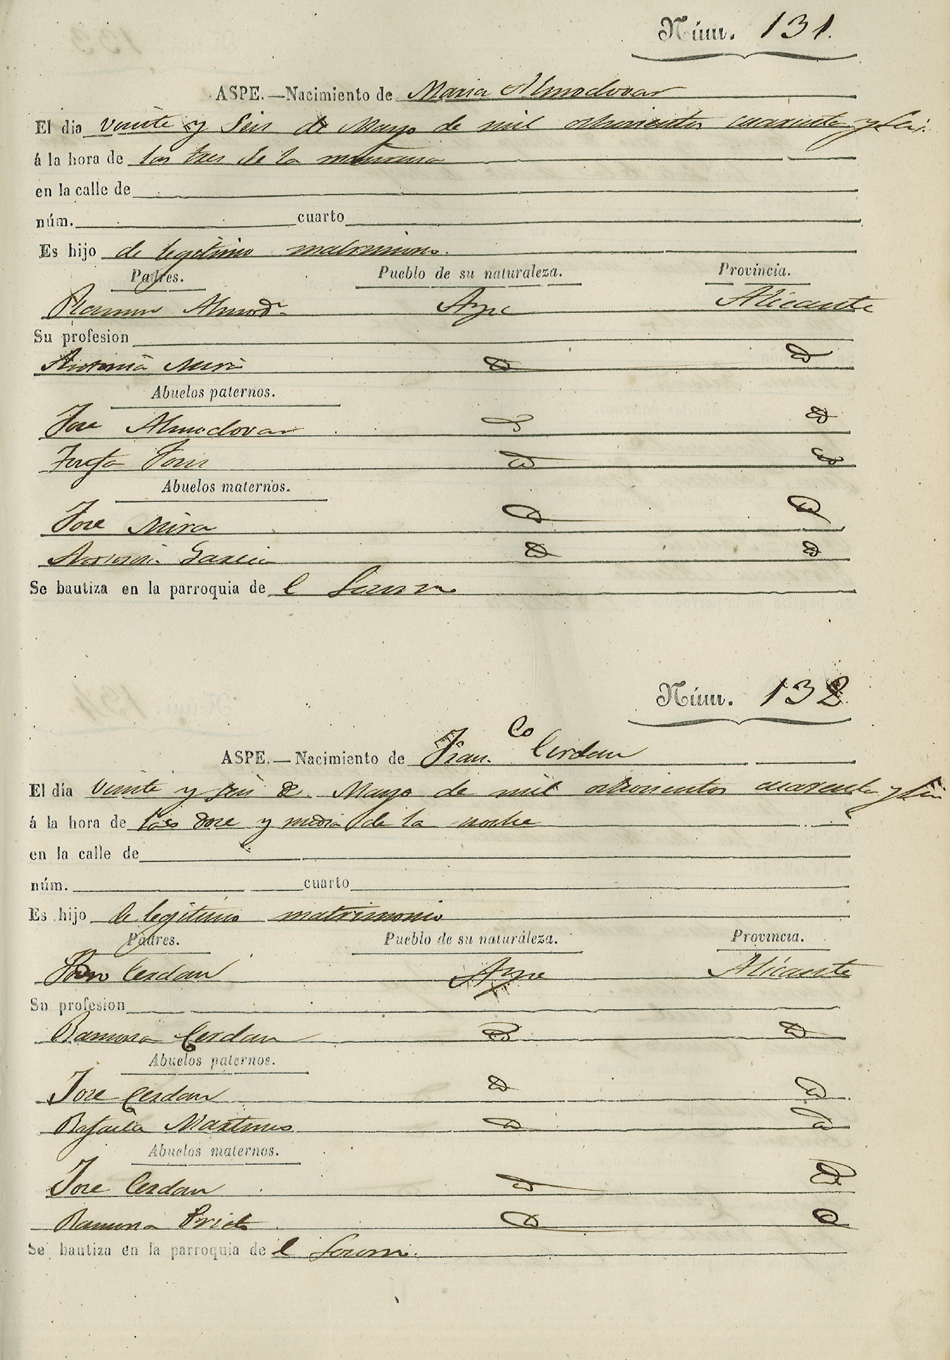 Núm. 131.
ASPE.—Nacimiento de Maria Almodovar
El dia veinte y Seis de Mayo de mil ochocientos cuarenta y seis
á la hora de las tres de la mañana
en la calle de
núm. cuarto
Es hijo de legitimo matrimonio.
Padres. Pueblo de su naturaleza. Provincia.
Ramon Almodr Aspe Alicante
Su profesion
Antonia Mira D D
Abuelos paternos.
Jose Almodovar D D
Josefa D D
Abuelos maternos.
Jose Mira D D
Antonia Garcia D D
Se bautiza en la parroquia de l Socorro
Núm. 132
ASPE.—Nacimiento de Franco Cerdan
El dia veinte y seis de Mayo de mil ochocientos cuarenta y seis
á la hora de las doce y media de la noche
en la calle de
núm. cuarto
Es hijo de legitimo matrimonio
Padres. Pueblo de su naturaleza. Provincia.
Cerdan Aspe Alicante
Su profesion
Ramona Cerdan D D
Abuelos paternos.
Jose Cerdan D D
Rafaela Martines D D
Abuelos maternos.
Jose Cerdan D D
Ramona Prieto D D
Se bautiza en la parroquia de l Socorro.